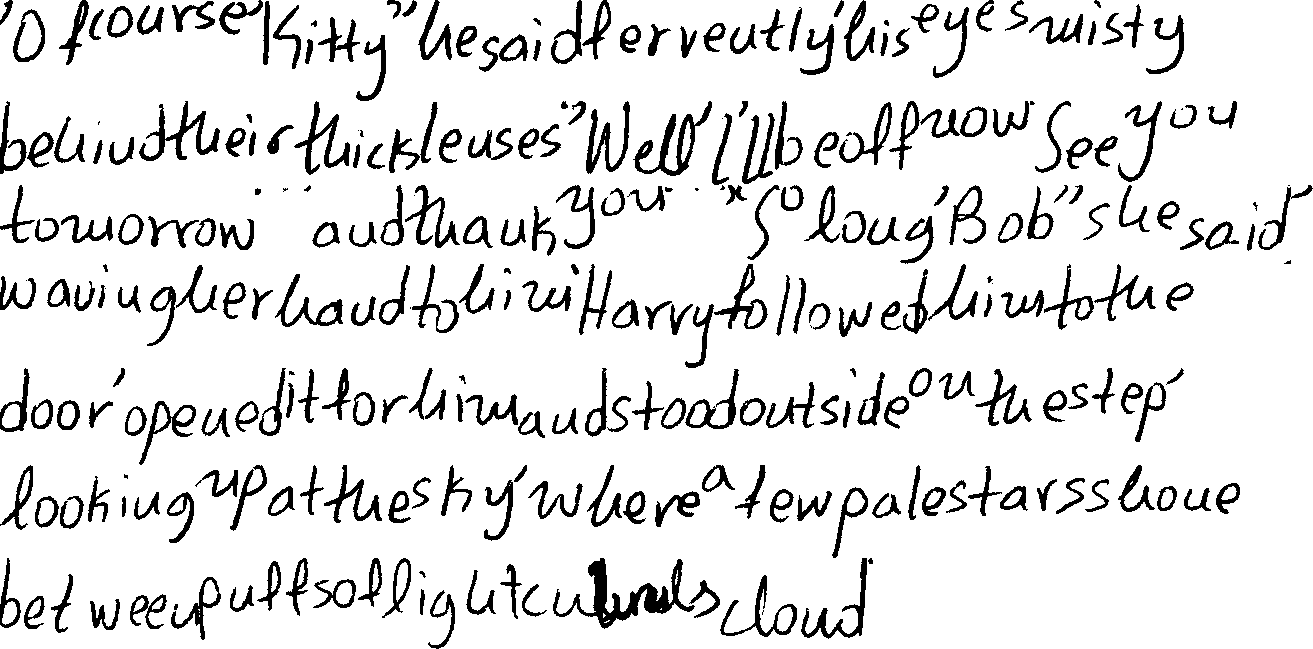 'Of course Kitty" he said fervently' his eyes misty
behind their thick lenses "Well' I'll be off now See you
tomorrow " and thank you " "So long' Bob" she said'
waving her hand to him' Harry followed him to the
door' opened it for him and stood outside on the step'
looking up at the sky' where a few pale stars shone
between puffs of light cloud